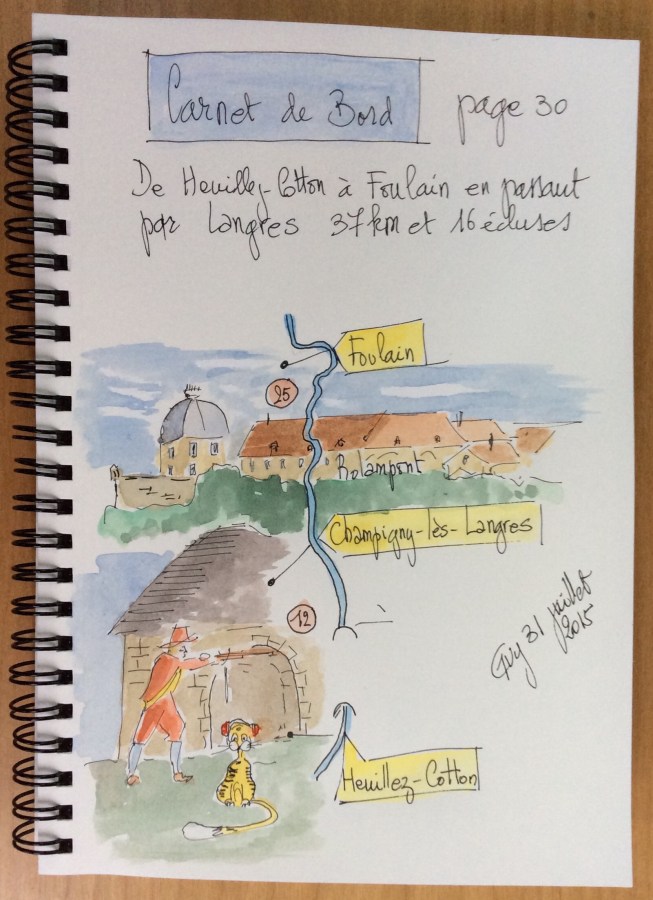 Carnet de Bord
page 30
De Heuillez-Cotton à Foulain en passant
par Langres 37km et 16 écluses
Foulain
25
Rolampont
Champigny-lès-Langres
12
Guy 31 juillet
2015
Heuillez-Cotton